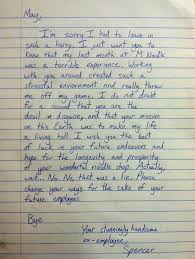 May,
I'm sorry I had to leave in
such a hurry. I just want you to
know that my last month at "M Noodle
was a terrible experience. Working
with you around created such a
stressful enviroment and really threw
me off my game. I do not doubt
for a second that you are the
devil in disguise, and that your mission
on this Earth was to make my life
a living hell. I wish you the best
of luck in your future endeavors and
hope for the longevity and prosperity
of your wonderful noodle shop. Actually,
wait.. No. No, that was a lie. Please
change your ways for the sake of your
future employees.
Bye.
Your stunningly handsome
ex-employee,
Spencer